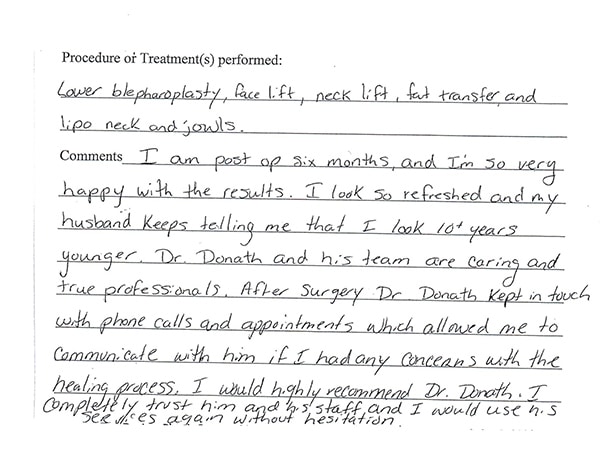 Procedure or Treatment(s) performed:
Lower blepharoplasty, face lift, neck lift, fat transfer, and
lipo neck and jowls.
Comments I am post op six months, and I'm so very
happy with the results. I look so refreshed and my
husband keeps telling me that I look 10+ years
younger. Dr. Donath and his team are caring and
true professionals. After surgery Dr. Donath kept in touch
with phone calls and appointments which allowed me to
communicate with him if I had any concerns with the
healing process. I would highly recommend Dr. Donath. I
completely trust him and his staff and I would use his
services again without hesitation.